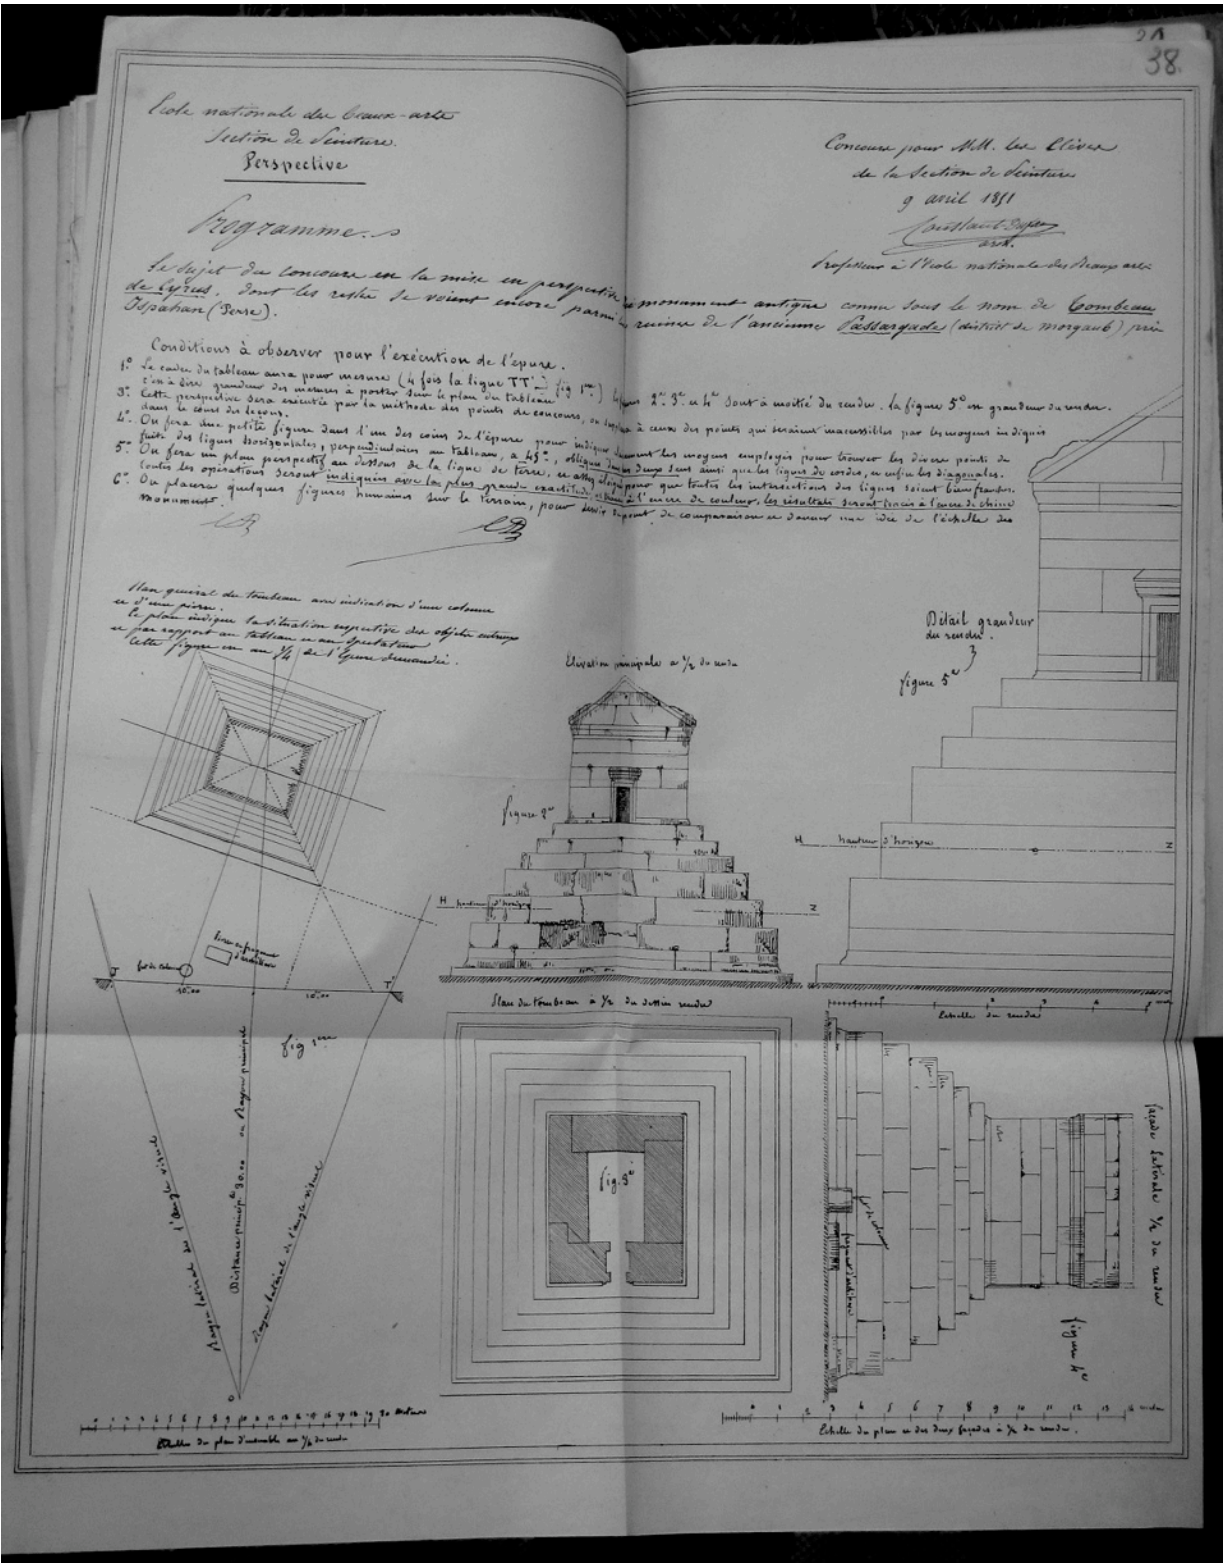 21
38.
Ecole nationale des beaux-arts
Section de Peinture.
Perspective
Programme.
Concours pour MM. les Elèves
de la Section de Peinture
9 avril 1851
Constant-Dufeux
arch.
Professeur à l'Ecole nationale des Beaux arts
Le sujet du concours est la mise en perspective du monument antique connu sous le nom de Tombeau
de Cyrus, dont les restes se voient encore parmi les ruines de l'ancienne Passargade (district de Morgaub) près
Ispahan (Perse).
Conditions à observer pour l'exécution de l'épure.
1º Le cadre du tableau aura pour mesure (4 fois la ligne TT' fig 1re) les figures 2e 3e et 4e sont à moitié du rendu. la figure 5e en grandeur du rendu.
c'est à dire grandeur des mesures à porter sur le plan du tableau
3º Cette perspective sera exécutée par la méthode des points de concours, ou à ceux des points qui seraient inaccessibles par les moyens indiqués
dans le cours des leçons.
4º On fera une petite figure dans l'un des coins de l'épure pour indiquer les moyens employés pour trouver les divers points de
fuite des lignes horizontales, perpendiculaires au tableau, à 45º, obliques dans les deux sens ainsi que les lignes de cordes, et enfin les diagonales.
5º On fera un plan perspectif au dessous de la ligne de terre, et assez éloigné pour que toutes les intersections des lignes soient bien franches.
toutes les opérations seront indiquées avec la plus grande exactitude à l'encre de couleur, les résultats seront tracés à l'encre de chine
6º On placera quelques figures humaines sur le terrain, pour servir de point de comparaison et donner une idée de l'échelle du
monument.
CD
CD
Plan général du tombeau avec indication d'une colonne
et d'une pierre.
Ce plan indique la situation respective des objets entr'eux
et par rapport au tableau et au spectateur
Cette figure est au 1/4 de l'épure demandée.
Elévation principale à 1/2 du rendu
Détail grandeur
du rendu.
figure 5e
figure 2e
H hauteur d'horizon
H hauteur d'horizon
T
fut de colonne
10.00
10.00
T'
fig 1re
Plan du tombeau à 1/2 du dessin rendu
Echelle du rendu
Rayon latéral de l'angle visuel
Distance principale 30.00 ou Rayon principal
Rayon latéral de l'angle visuel
O
fig. 3e
fut de colonne
façade latérale 1/2 du rendu
figure 4e
0 1 2 3 4 5 6 7 8 9 10 11 12 13 14 15 16 17 18 19 20 mètres
Echelle du plan d'ensemble au 1/4 du rendu
0 1 2 3 4 5 6 7 8 9 10 11 12 13 14 mètres
Echelle du plan et des deux façades à 1/2 du rendu.